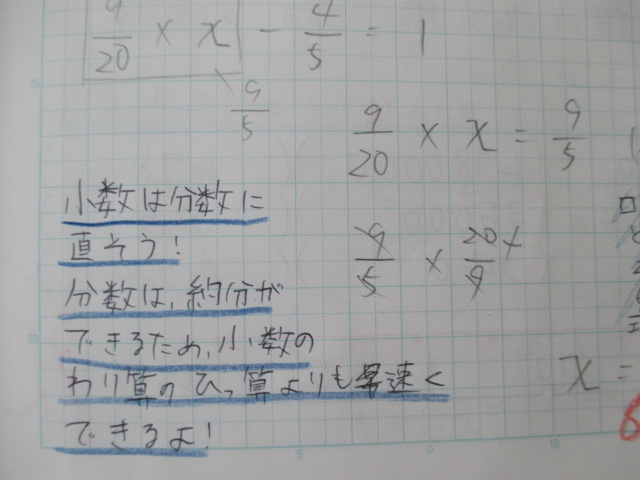 9/20 × x − 4/5 = 1
9/5
9/20 × x = 9/5
9/5 × 20/9
x =
小数は分数に
直そう!
分数は、約分が
できるため、小数の
わり算のひっ算よりも早速く
できるよ!
5
10